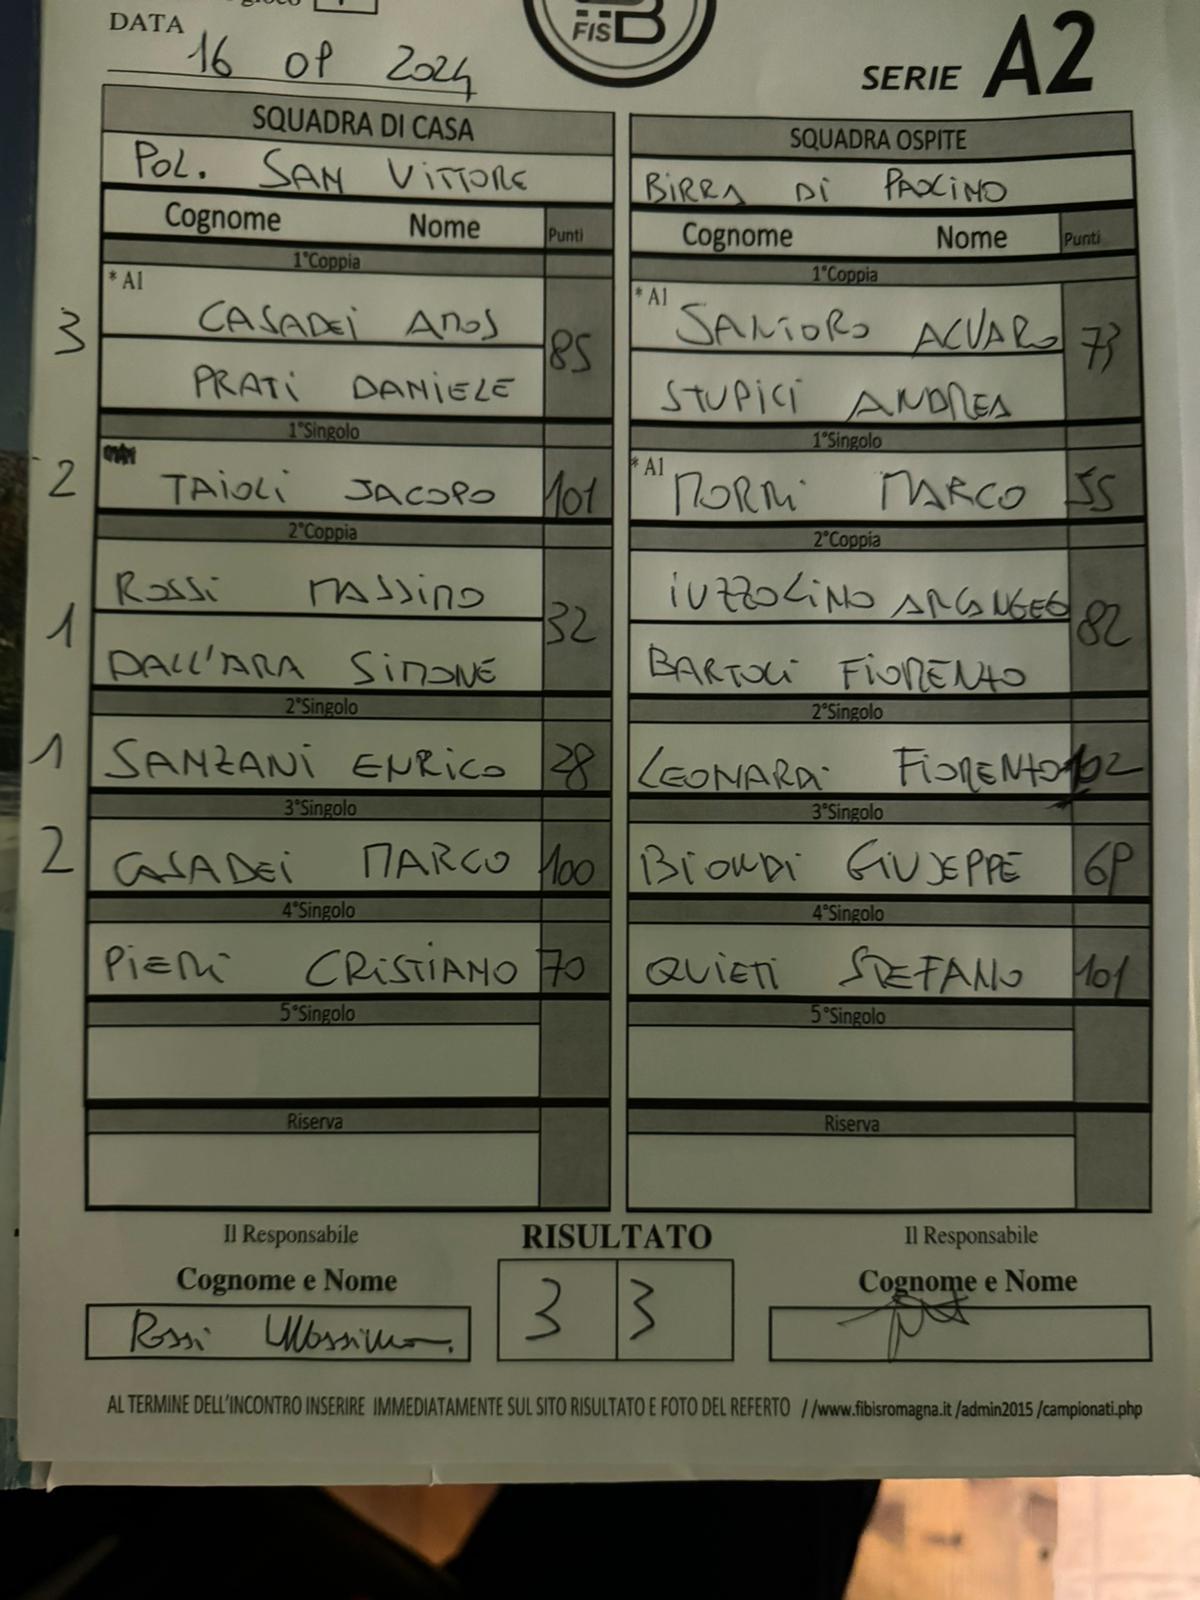 DATA 16 09 2024
FIS B
SERIE A2
SQUADRA DI CASA
POL. SAN VITTORE
Cognome Nome Punti
1°Coppia
*A1
3 CASADEI AMOS 85
PRATI DANIELE
1°Singolo
2 TAIOLI JACOPO 101
2°Coppia
ROSSI MASSIMO
1 32
DALL'ARA SIMONE
2°Singolo
1 SANZANI ENRICO 28
3°Singolo
2 CASADEI MARCO 100
4°Singolo
PIERI CRISTIANO 70
5°Singolo
Riserva
SQUADRA OSPITE
BIRRA DI
Cognome Nome Punti
1°Coppia
*A1
SANTORO ALVARO 73
STUPICI ANDREA
1°Singolo
*A1
MORRI MARCO 55
2°Coppia
IUZZOLINO ARCANGELO
82
BARTOLI FIORENZO
2°Singolo
LEONARDI FIORENZO 102
3°Singolo
BIONDI GIUSEPPE 69
4°Singolo
QUIETI STEFANO 101
5°Singolo
Riserva
Il Responsabile RISULTATO Il Responsabile
Cognome e Nome 3 3 Cognome e Nome
Rossi Massimo.
AL TERMINE DELL'INCONTRO INSERIRE IMMEDIATAMENTE SUL SITO RISULTATO E FOTO DEL REFERTO //www.fibisromagna.it /admin2015 /campionati.php